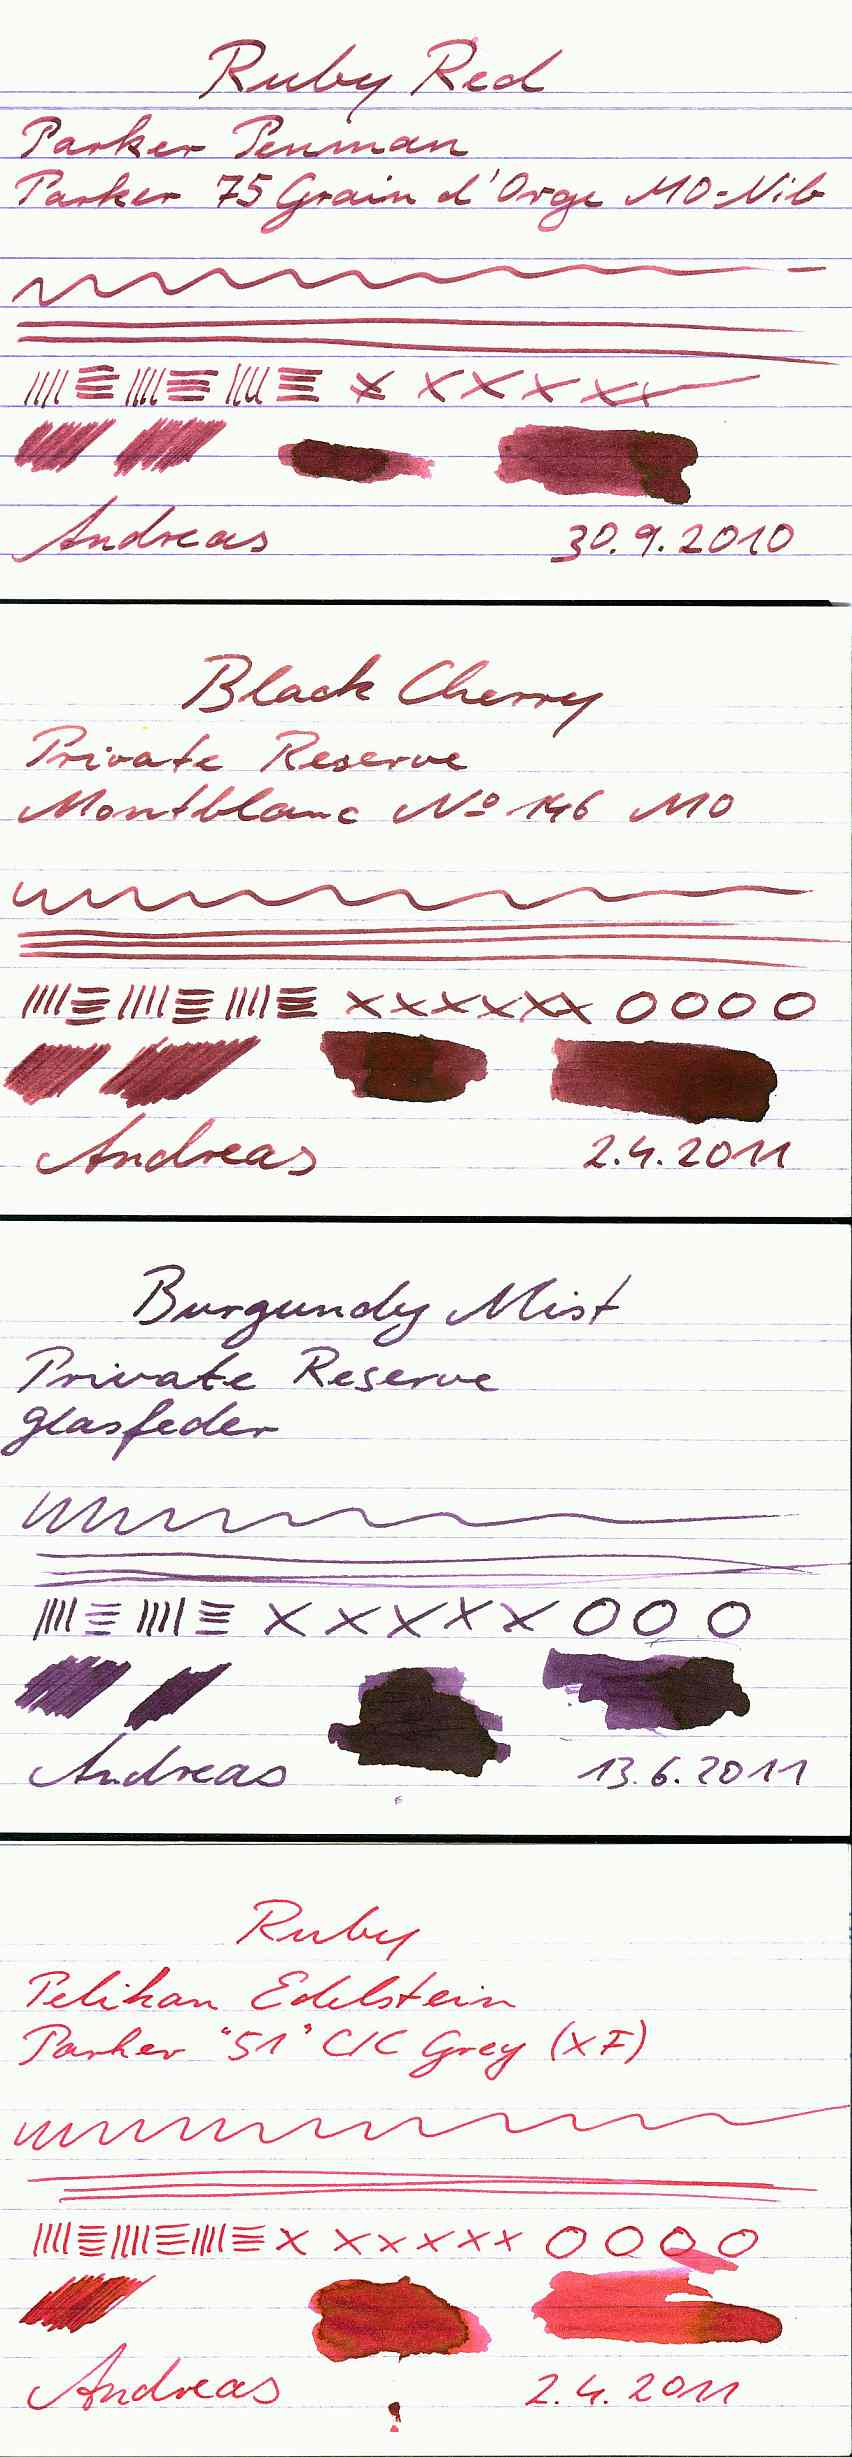 Ruby Red
Parker Penman
Parker 75 Grain d'Orge MO-Nib
Andreas 30.9.2010
Black Cherry
Private Reserve
Montblanc Nº 146 MO
Andreas 2.4.2011
Burgundy Mist
Private Reserve
Glasfeder
Andreas 13.6.2011
Ruby
Pelikan Edelstein
Parker "51" C/C Grey (XF)
Andreas 2.4.2011